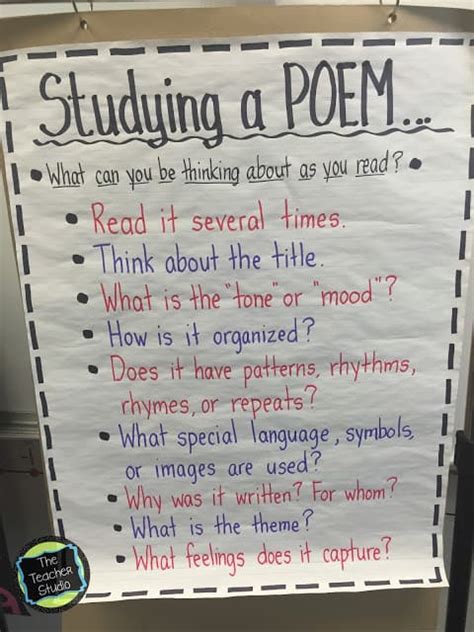 Studying a POEM...
• What can you be thinking about as you read? •
• Read it several times.
• Think about the title.
• What is the "tone" or "mood"?
• How is it organized?
• Does it have patterns, rhythms,
rhymes, or repeats?
• What special language, symbols,
or images are used?
• Why was it written? For whom?
• What is the theme?
• What feelings does it capture?
The
Teacher
Studio